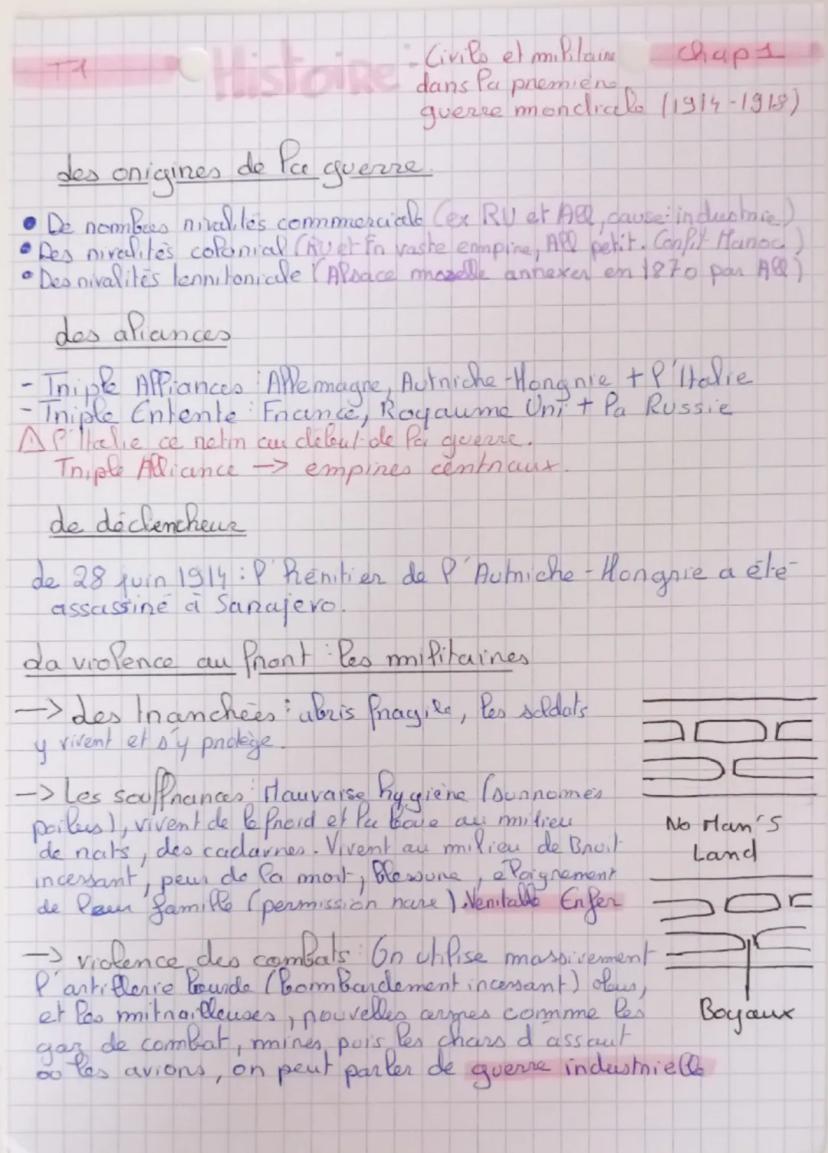 T1
Histoire : Civils et militaire
Chap 1
dans la première
guerre mondiale (1914-1918)
Les origines de la guerre.
• De nombres rivalités commerciale (ex RU et All, cause: industrie)
• Des rivalités colonial (RU et Fr vaste empire, All petit. Conflit Maroc)
• Des rivalités territoriale (Alsace mozelle annexer en 1870 par All)
Les aliances
- Triple Alliances : Allemagne, Autriche-Hongrie + l'Italie
- Triple Entente : France, Royaume Uni + la Russie
⚠ l'Italie ce retir au début de la guerre.
Triple Alliance -> empires centraux.
Le déclencheur
Le 28 juin 1914 : l'héritier de l'Autriche-Hongrie a été
assassiné à Sarajevo.
La violence au front : les militaires
-> Les tranchées : abris fragile, les soldats
y vivent et s'y protège.
-> Les souffrances : Mauvaise hygiène (surnomés
poilus), vivent de le froid et la boue au milieu
de rats, des cadavres. Vivent au milieu de Bruit
incessant, peur de la mort, Blessure, eloignement
de leur famille (permission rare). Veritable Enfer
No Man's
Land
-> violence des combats : On utilise massivement
l'artillerie lourde (Bombardement incessant) obus,
et les mitrailleuses, nouvelles armes comme les
gaz de combat, mines, puis les chars d'assaut
les avions, on peut parler de guerre industrielle
Boyaux